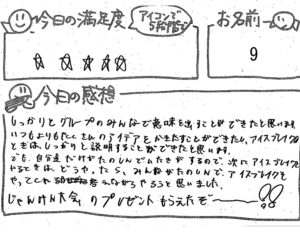 今日の満足度
アイコンで
5段階で
お名前
☆☆☆☆☆
9
今日の感想
しっかりとグループのみんなで意味を出すことができたと思います。
いつもよりもたくさんのアイデアを出すことができたし、アイスブレイクの
ときはしっかりと説明することができたと思います。
でも、自分達だけがたのしんでいた気がするので、次にアイスブレイクを
やるときは、どうやったら、みんながたのしんで、アイスブレイクを
やってくれるか考えながらやろうと思いました。
じゃんけん大会のプレゼントもらえたぞー!!